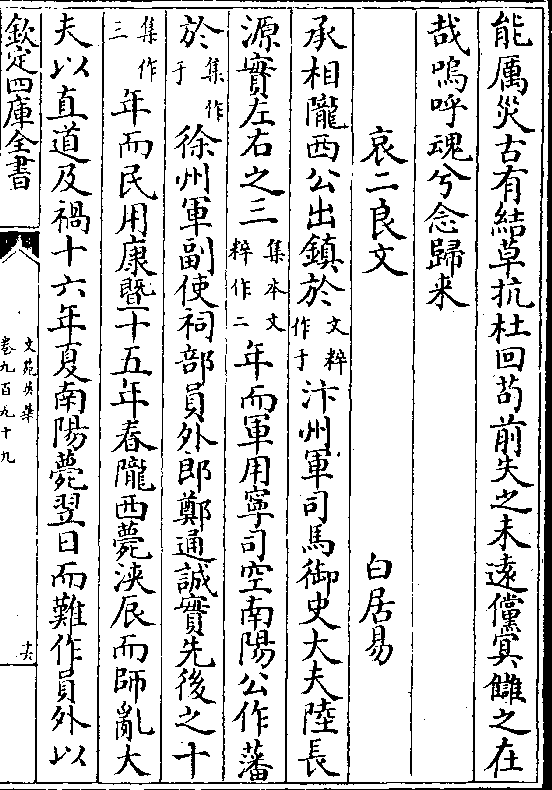 能厲災古有結草抗杜回苟前失之未遠儻㝠讎之在
哉嗚呼魂兮念歸来
哀二良文 白居易
承相隴西公出鎮於文粹作于汴州軍司馬御史大夫陸長
源實左右之三集本文粹作二年而軍用寧司空南陽公作藩
於集作于徐州軍副使祠部員外郎鄭通誠實先後之十
集作三年而民用康暨十五年春隴西薨浹辰而師亂大
夫以直道及禍十六年夏南陽薨翌日而難作員外以
欽定四庫全書
文苑英華
卷九百九十九
十六